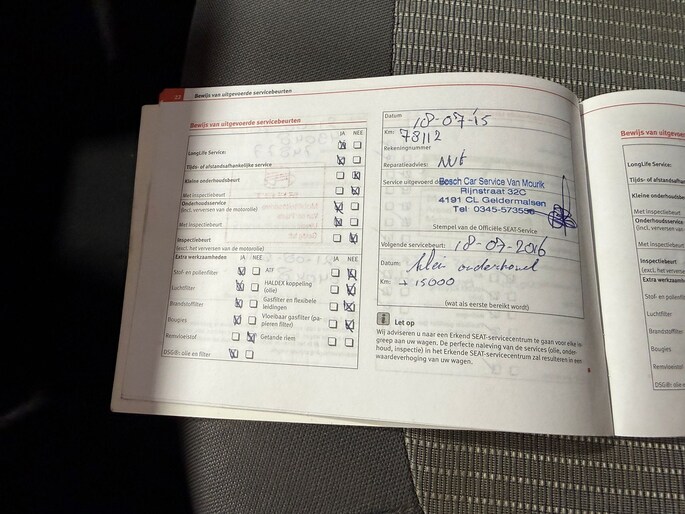 22 Bewijs van uitgevoerde servicebeurten
Bewijs van uitgevoerde servicebeurten
JA NEE
LongLife Service:
Tijds- of afstandsafhankelijke service
Kleine onderhoudsbeurt
Met inspectiebeurt
Onderhoudsservice
(incl. verversen van de motorolie)
Met inspectiebeurt
Inspectiebeurt
(excl. het verversen van de motorolie)
Extra werkzaamheden JA NEE JA NEE
Stof- en pollenfilter ATF
Luchtfilter HALDEX koppeling
(olie)
Brandstoffilter Gasfilter en flexibele
leidingen
Bougies Vloeibaar gasfilter (pa-
pieren filter)
Remvloeistof Getande riem
DSG®: olie en filter
Datum 18-07-15
Km: 78112
Rekeningnummer
Reparatieadvies:
Service uitgevoerd door
Bosch Car Service Van Mourik
Rijnstraat 32C
4191 CL Geldermalsen
Tel 0345-573556
Stempel van de Officiële SEAT-Service
Volgende servicebeurt: 18-07-2016
Datum: klein onderhoud
Km: + 15000
(wat als eerste bereikt wordt)
Let op
Wij adviseren u naar een Erkend SEAT-servicecentrum te gaan voor elke in-
greep aan uw wagen. De perfecte naleving van de services (olie, onder-
houd, inspectie) in het Erkende SEAT-servicecentrum zal resulteren in een
waardeverhoging van uw wagen.
Bewijs van uitgevoer
LongLife Service:
Tijds- of afstandsafhanke
Kleine onderhoudsbeurt
Met inspectiebeurt
Onderhoudsservice
(incl. verversen van de
Met inspectiebeurt
Inspectiebeurt
(excl. het verversen va
Extra werkzaamheden
Stof- en pollenf
Luchtfilter
Brandstoffilter
Bougies
Remvloeistof
DSG®: olie en